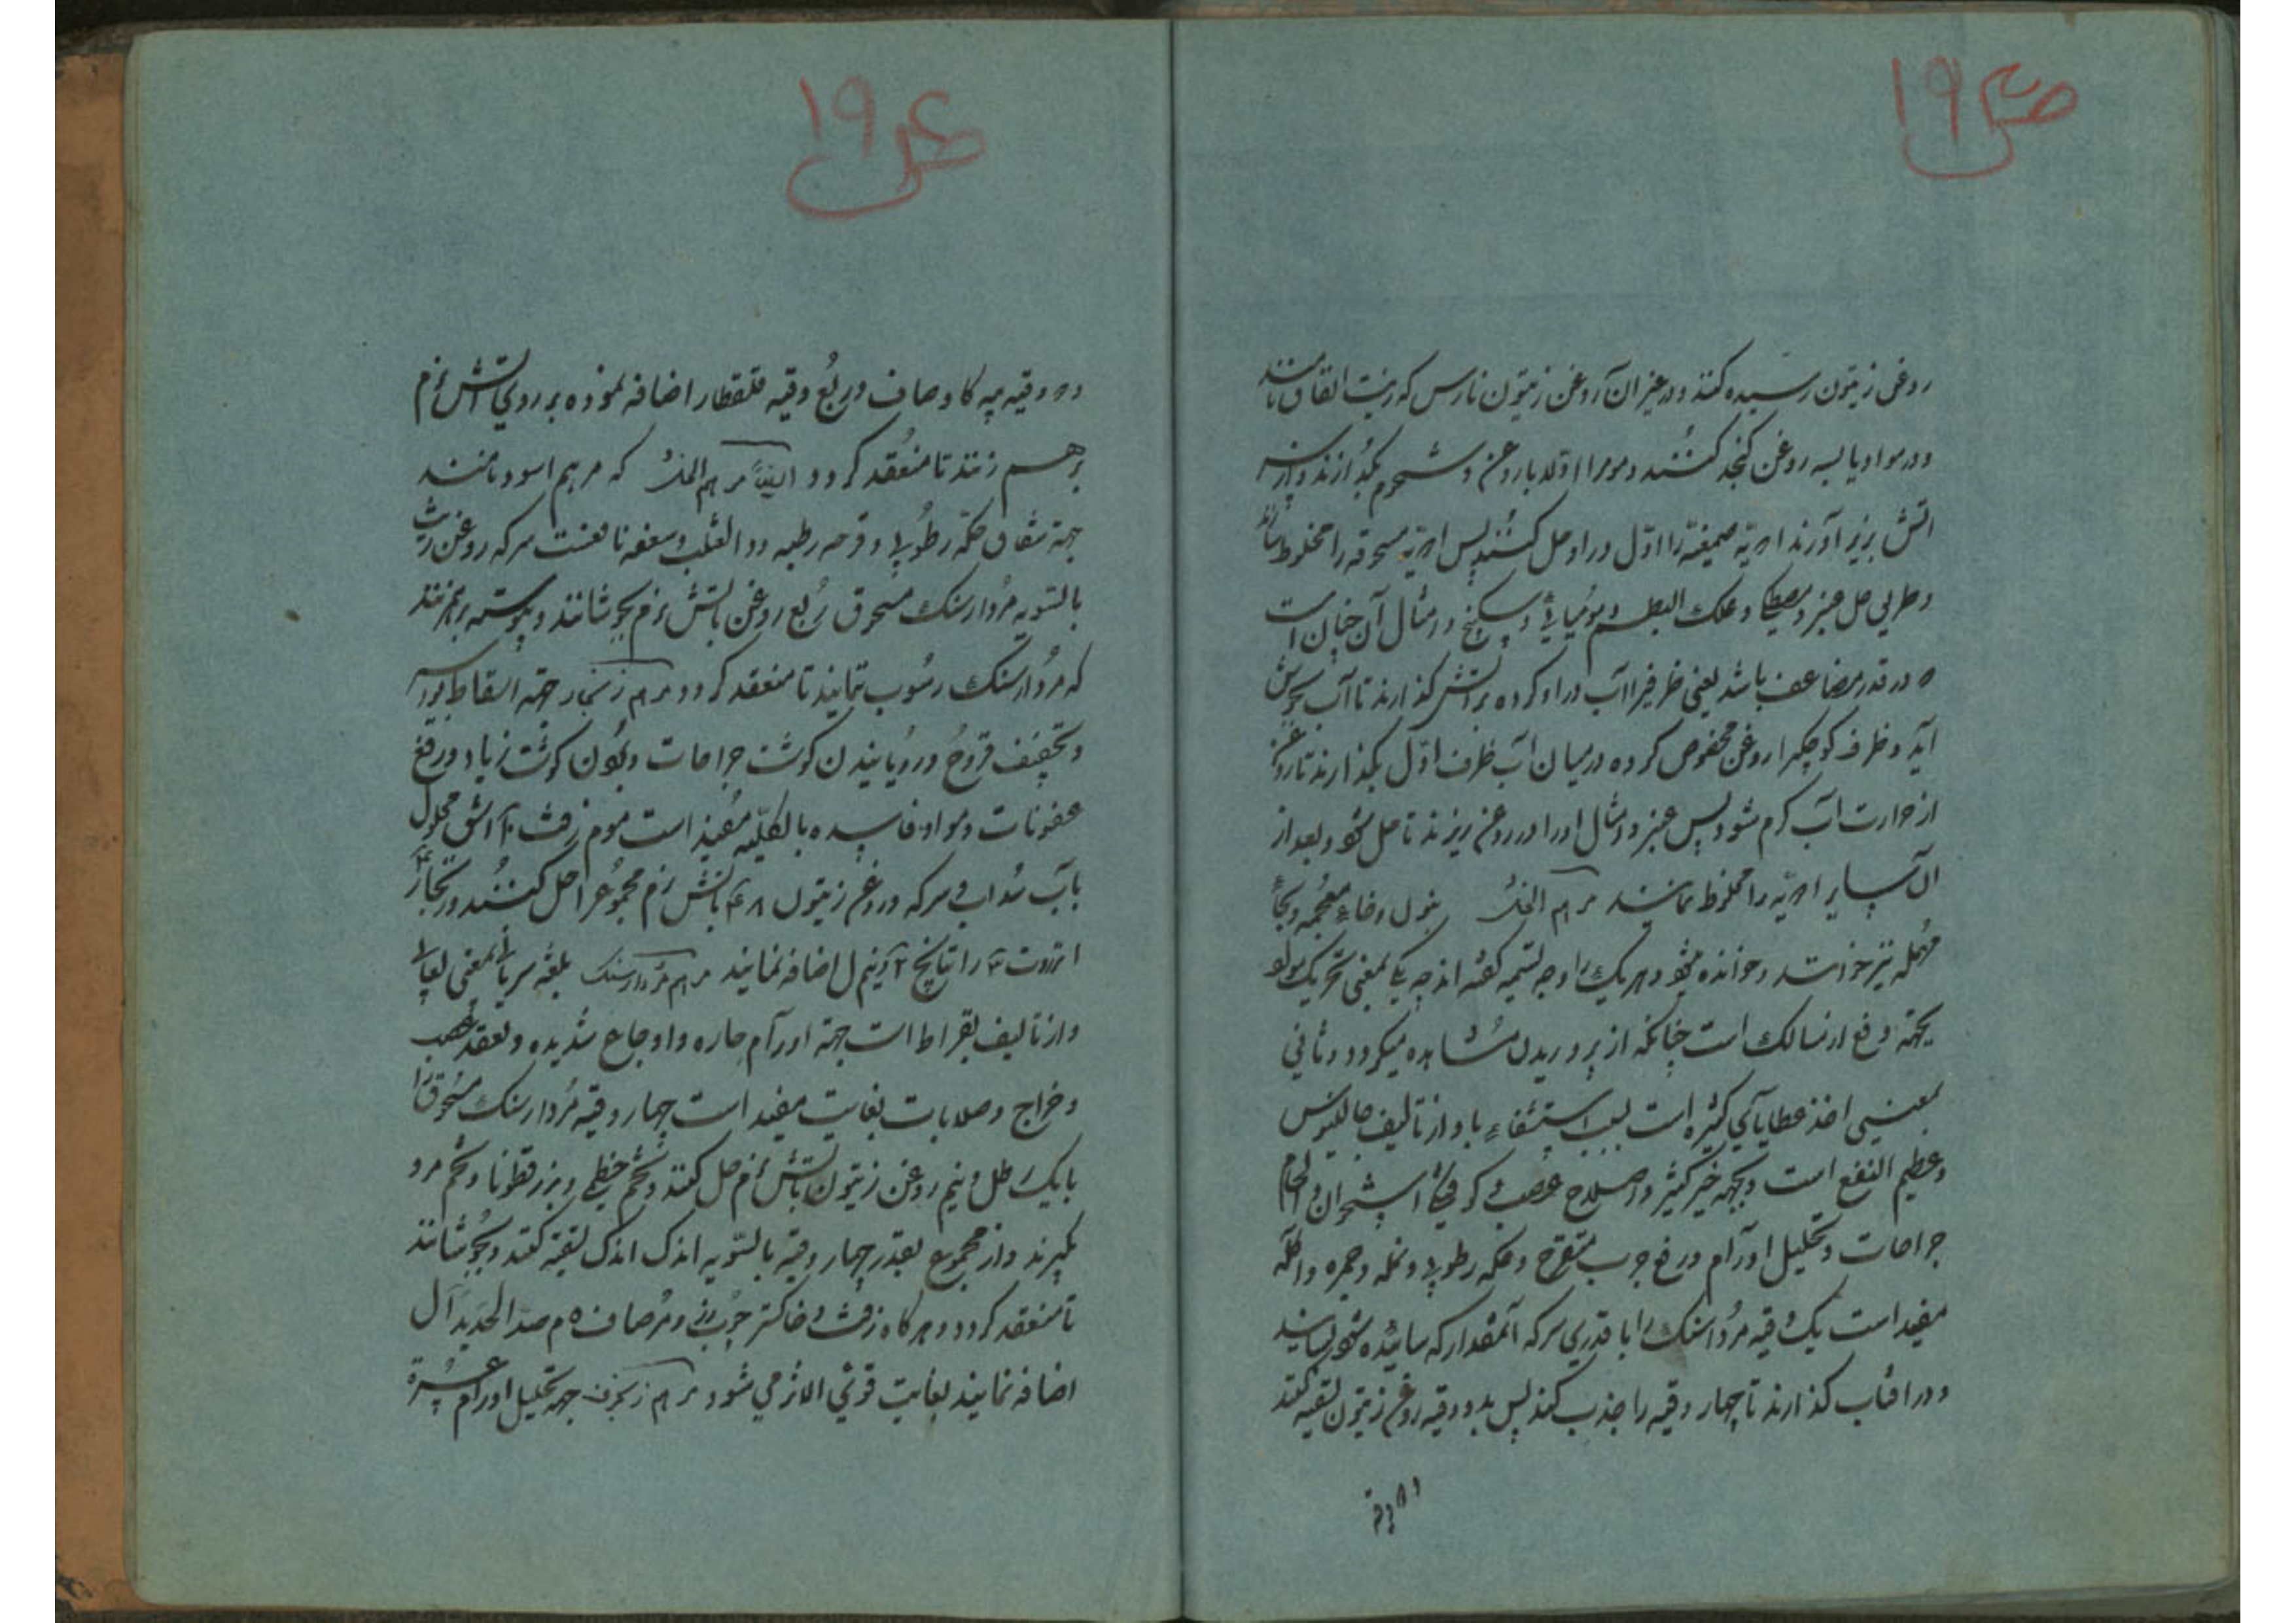 ص ۱۹
روغن زیتون رسیده کنند و در غیر آن روغن زیتون نارس که زیت انفاق نامند
و در مواد یابسه روغن کنجد کنند و موم را اولا با روغن و شحوم بگدازند و از سر
اتش بزیر آورند ادویه صمغیه را اوّل در او حل کنند پس ادویه مسحوقه را مخلوط سازند
و طریق حل عنبر و مصطکی و علک البطم و مومیائی و سکبینج و امثال آن چنان است
ه در قدر مضاعف باشد یعنی ظرفیرا آب در او کرده بر آتش گذارند تا آب بجوش
آید و ظرف کوچکیرا روغن مخصوص کرده در میان آب ظرف اوّل بگذارند تا روغن
از حرارت آب گرم شود پس عنبر و امثال او را در روغن ریزند تا حل شود و بعد از
آن سایر ادویّه را مخلوط نمایند مرهم النخل بنون و خاء معجمه و بحاء
مهمله نیز خوانند و خوانده میشود و هر یک را وجه تسمیه گفته‌اند چه یکی بمعنی تحریک
بجهة دفع از مسالک است چنانکه از پرویزن مشاهده میکردد و ثانی
بمعنی اخذ عطایای کثیره است بسبب استشفاء باو از تالیف جالینوس
و عظیم النفع است و بجهة خیر کثیر و اصلاح عصب کوفتگی استخوان و الحام
جراحات و تحلیل اورام و رفع جرب متقرح و حکه رطوبی و نمله و حمره و آکله
مفید است یک وقیه مرداسنک را با قدری سرکه آنمقدار که سائیده شود بسایند
و در افتاب گذارند تا چهار وقیه را جذب کند پس بدو وقیه روغن زیتون تسقیه کنند
و دو وقیه
ص ۱۹
ده وقیه پیه کاو صاف و ربع وقیه قلقطار اضافه نموده بر روی آتش نرم
برهم زنند تا منعقد کردد ایضاً مرهم الخل که مرهم اسود نامند
جهة شقاق حکّه رطوبی و قرحه رطبه و داء الثعلب و سعفه نافعست سرکه روغن زیت
بالسّویه مردارسنک مسحوق ربع روغن باتش نرم بجوشانند و پیوسته برهم زنند
که مردارسنک رسوب ننماید تا منعقد کردد مرهم زنجار جهة اسقاط بواسیر
و تجفیف قروح و رویانیدن کوشت جراحات و بردن کوشت زیاد و رفع
عفونات و مواد فاسده بالکلیّه مفید است موم زفت ۲۰ اشق محلول
بآب سداب و سرکه و روغن زیتون ۴۸ باتش نرم مجموع را حل کنند و زنجار ۴
انزروت ۳ راتیانج ۲ و نیم ل اضافه نمایند مرهم مردارسنک بلغة سریانی بمعنی لعابی
و از تالیف بقراط است جهة اورام حاره و اوجاع شدیده و تعقد عصب
و خراج و صلابات بغایت مفید است چهار وقیه مردارسنک مسحوق را
با یک رطل و نیم روغن زیتون باتش نرم حل کنند و تخم خطمی و بزرقطونا و تخم مرو
بگیرند و از مجموع بقدر چهار وقیه بالسّویه اندک اندک تسقیه کنند و بجوشانند
تا منعقد کردد و هر گاه زفت و خاکستر چوب رز و مر صاف ه م صدا الحدید آ ل
اضافه نمایند بغایت قوی الاثر می شود مرهم زنجفر جهة تحلیل اورام عسرة